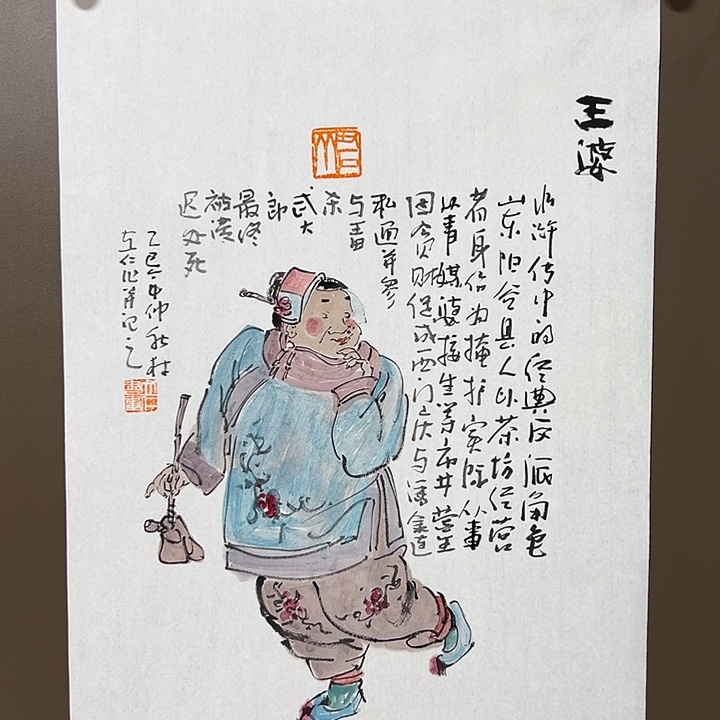 王婆
水浒传中的经典反派角色
山东阳谷县人以茶坊经营
者身份为掩护实际从事
从事媒婆接生等市井营生
因贪财促成西门庆与潘金莲
私通并参
与毒
杀
武大
郎
最终
被凌
迟处死
乙巳年仲秋